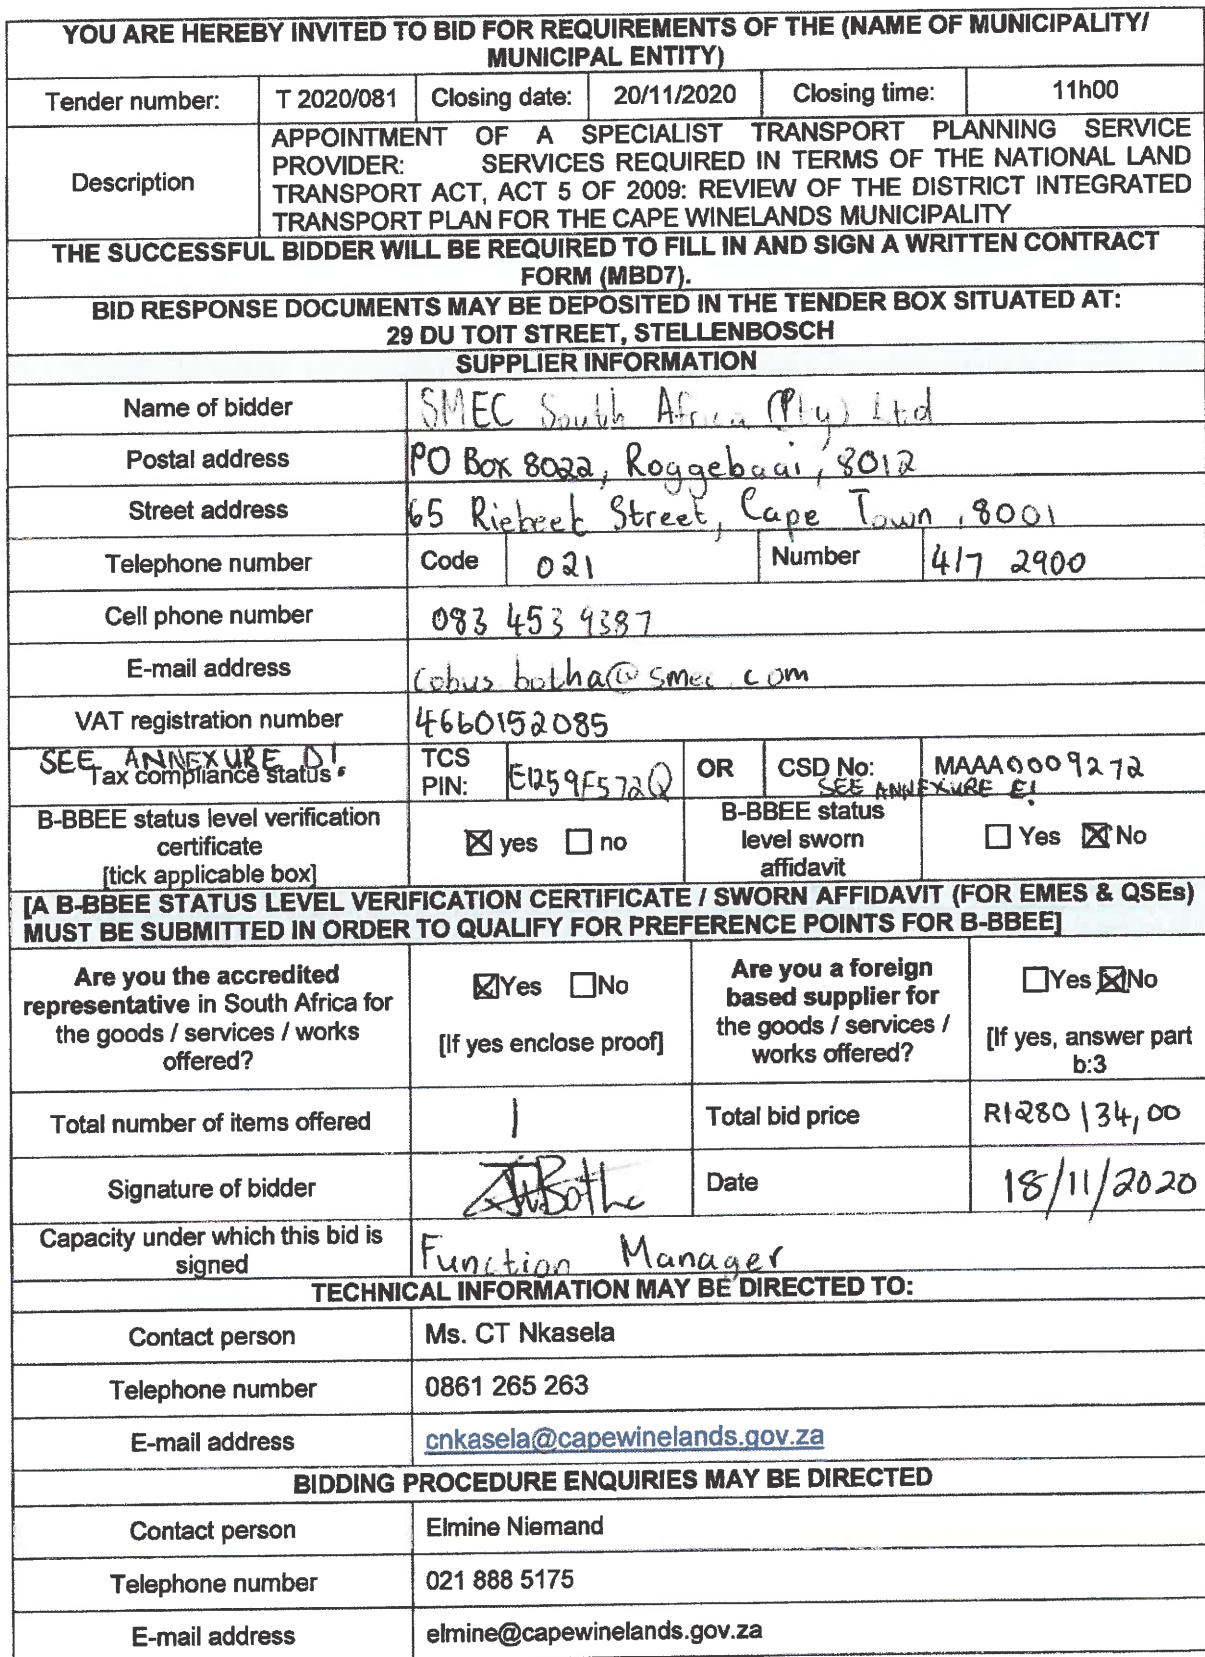 YOU ARE HEREBY INVITED TO BID FOR REQUIREMENTS OF THE (NAME OF MUNICIPALITY/
MUNICIPAL ENTITY)
Tender number: T 2020/081 Closing date: 20/11/2020 Closing time: 11h00
Description
APPOINTMENT OF A SPECIALIST TRANSPORT PLANNING SERVICE
PROVIDER: SERVICES REQUIRED IN TERMS OF THE NATIONAL LAND
TRANSPORT ACT, ACT 5 OF 2009: REVIEW OF THE DISTRICT INTEGRATED
TRANSPORT PLAN FOR THE CAPE WINELANDS MUNICIPALITY
THE SUCCESSFUL BIDDER WILL BE REQUIRED TO FILL IN AND SIGN A WRITTEN CONTRACT
FORM (MBD7).
BID RESPONSE DOCUMENTS MAY BE DEPOSITED IN THE TENDER BOX SITUATED AT:
29 DU TOIT STREET, STELLENBOSCH
SUPPLIER INFORMATION
Name of bidder SMEC South Africa (Pty) Ltd
Postal address PO Box 8022, Roggebaai, 8012
Street address 65 Riebeek Street, Cape Town, 8001
Telephone number Code 021 Number 417 2900
Cell phone number 083 453 9387
E-mail address cobus.botha@smec.com
VAT registration number 4660152085
SEE ANNEXURE D!
Tax compliance status
TCS
PIN:
E1259F572Q
OR
CSD No: MAAA0009272
SEE ANNEXURE E!
B-BBEE status level verification
certificate
[tick applicable box]
☒ yes ☐ no
B-BBEE status
level sworn
affidavit
☐ Yes ☒ No
[A B-BBEE STATUS LEVEL VERIFICATION CERTIFICATE / SWORN AFFIDAVIT (FOR EMES & QSEs)
MUST BE SUBMITTED IN ORDER TO QUALIFY FOR PREFERENCE POINTS FOR B-BBEE]
Are you the accredited
representative in South Africa for
the goods / services / works
offered?
☒Yes ☐No
[If yes enclose proof]
Are you a foreign
based supplier for
the goods / services /
works offered?
☐Yes ☒No
[If yes, answer part
b:3
Total number of items offered 1 Total bid price R1280134,00
Signature of bidder Botha Date 18/11/2020
Capacity under which this bid is
signed
Function Manager
TECHNICAL INFORMATION MAY BE DIRECTED TO:
Contact person Ms. CT Nkasela
Telephone number 0861 265 263
E-mail address cnkasela@capewinelands.gov.za
BIDDING PROCEDURE ENQUIRIES MAY BE DIRECTED
Contact person Elmine Niemand
Telephone number 021 888 5175
E-mail address elmine@capewinelands.gov.za